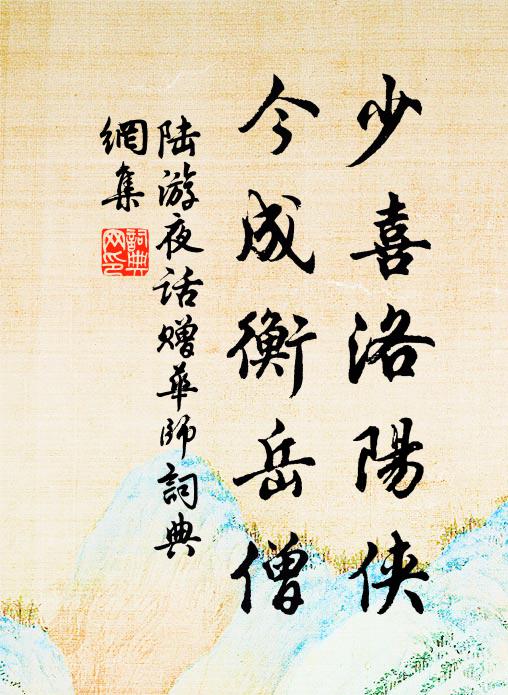 少喜洛陽俠
今成衡岳僧
陆游夜话赠華師詞典
網集
詞典網印